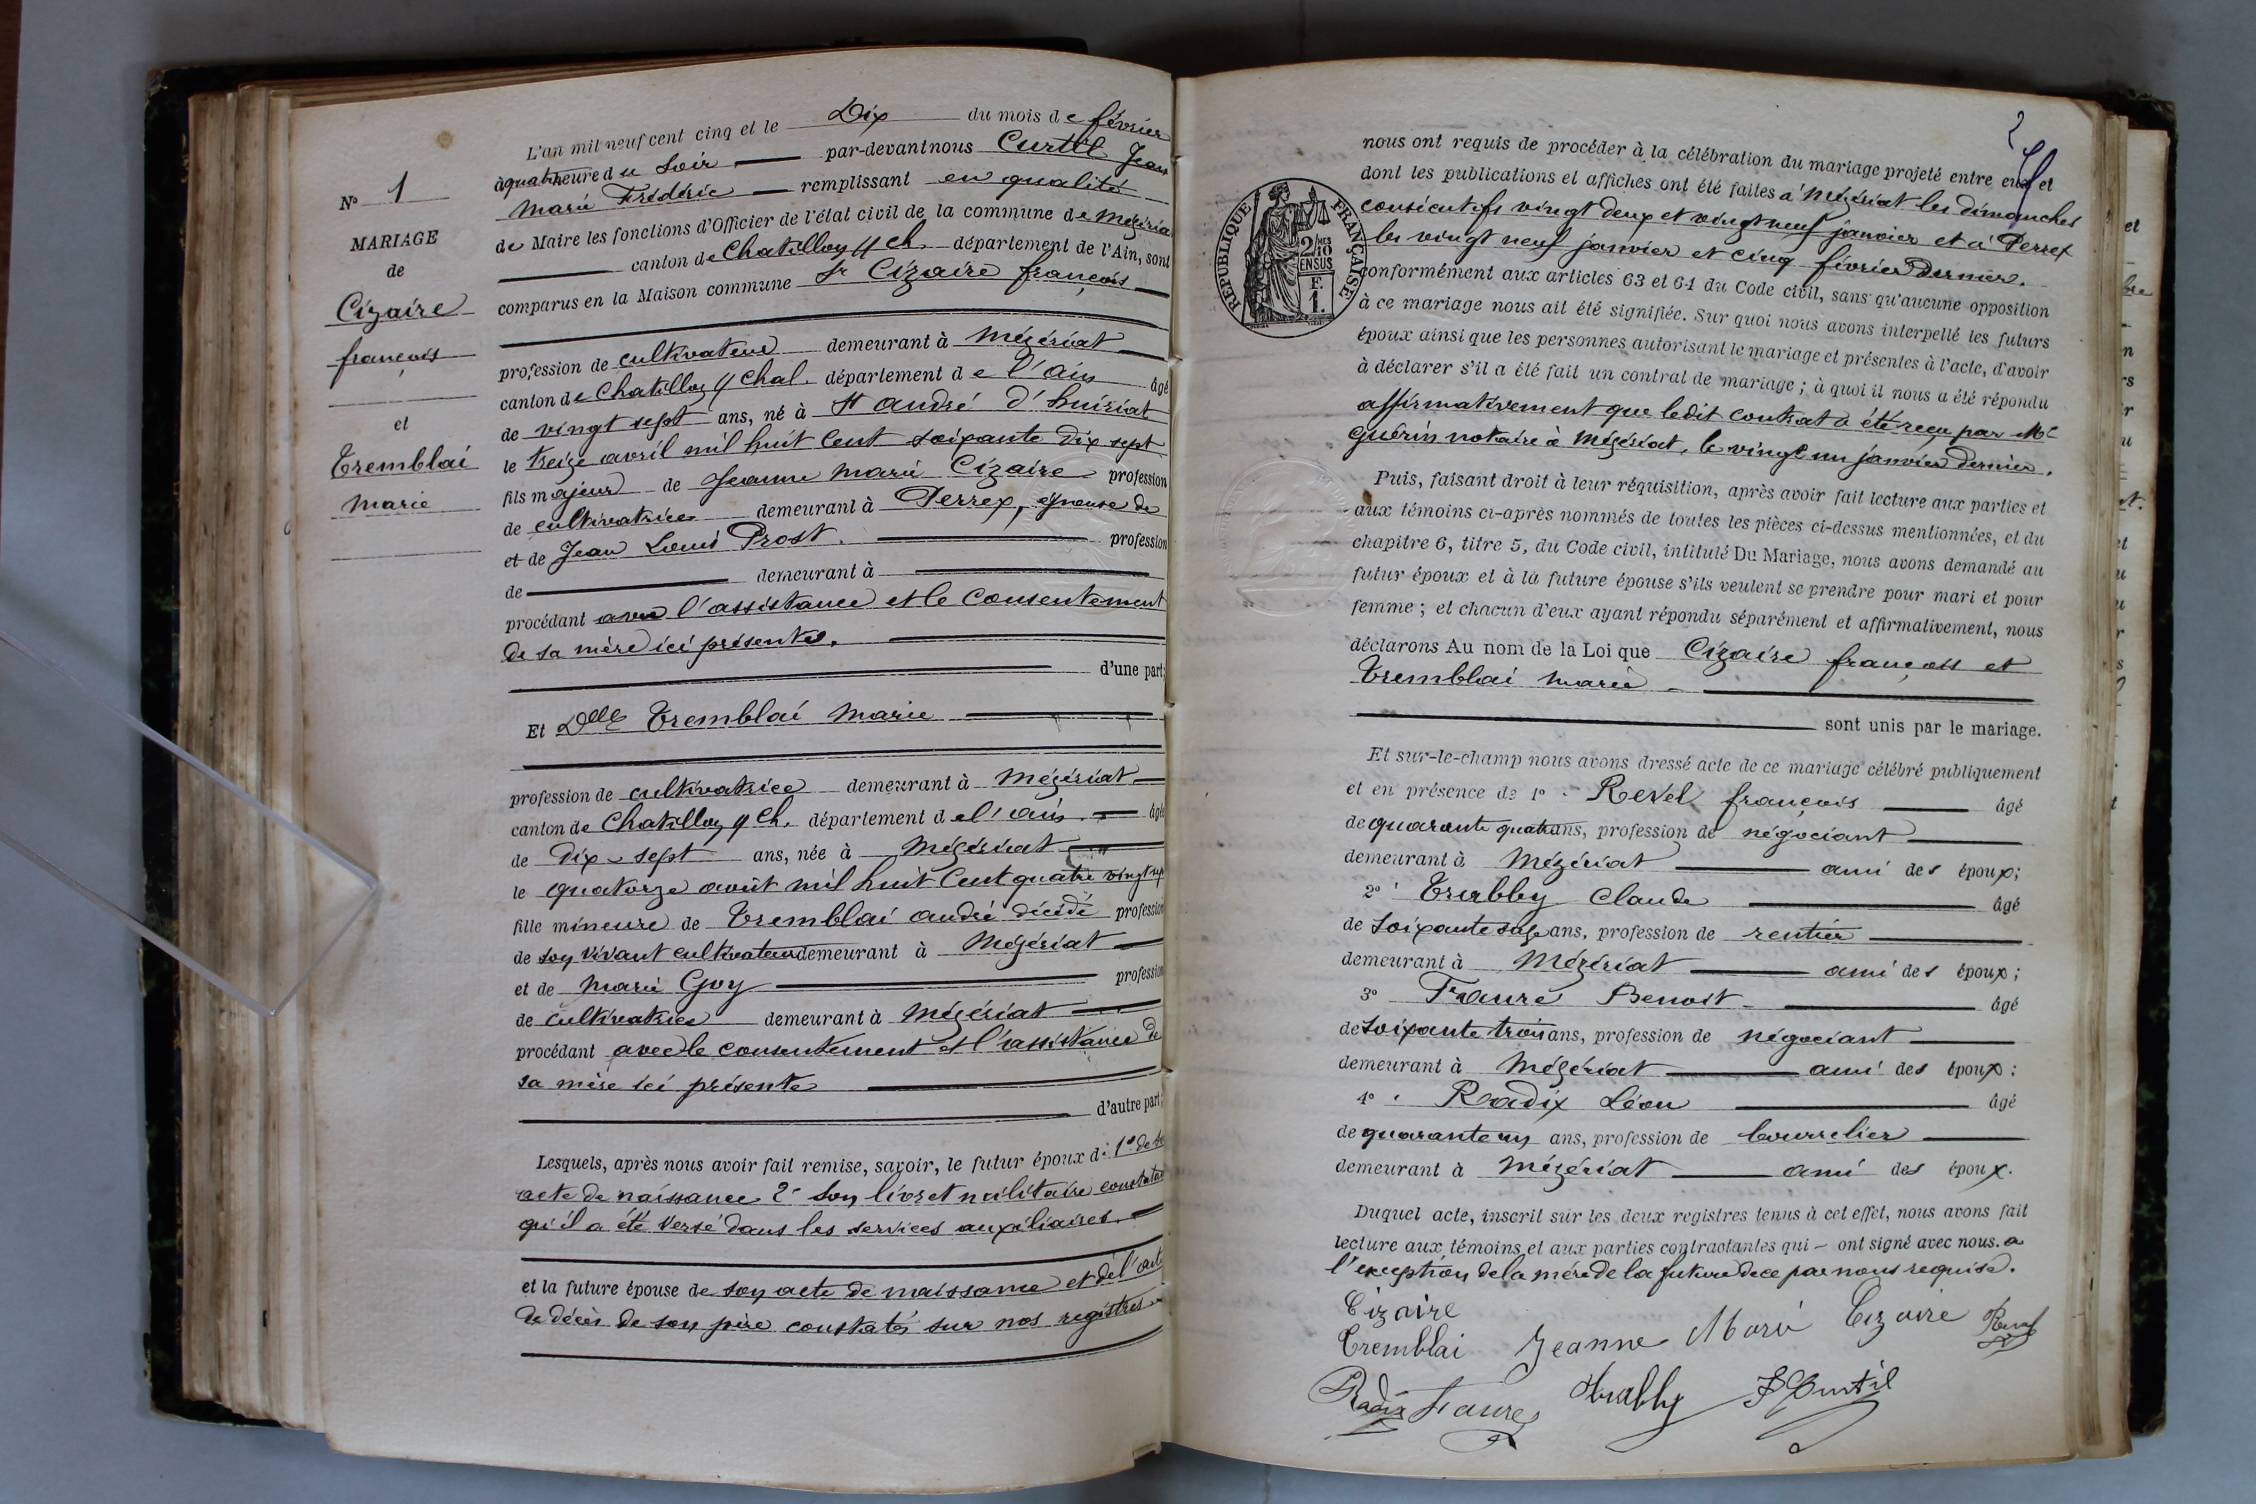 L'an mil neuf cent cinq et le Dix du mois de février
à quatre heure du soir par-devant nous Curtil Jean
Marie Frédéric remplissant en qualité
de Maire les fonctions d'Officier de l'état civil de la commune de Mézéria
canton de Chatillon s/ Ch. département de l'Ain, sont
comparus en la Maison commune Sr Cizaire françois
N° 1
MARIAGE
de
Cizaire
françois
et
Tremblai
Marie
profession de cultivateur demeurant à Mézériat
canton de Chatillon s/ Chal. département de l'ain âgé
de vingt sept ans, né à St andré d'huiriat
le treize avril mil huit cent soixante dix sept
fils majeur de Jeanne Marie Cizaire profession
de cultivatrice demeurant à Perrex, épouse de
et de Jean Louis Prost. profession
de demeurant à
procédant avec l'assistance et le consentement
de sa mère ici présente.
d'une part;
Et Delle Tremblai Marie
profession de cultivatrice demeurant à Mézériat
canton de Chatillon s/ Ch. département de l'ain. âgé
de dix-sept ans, née à Mézériat
le quatorze août mil huit cent quatre vingt sept
fille mineure de Tremblai andré décédé profession
de son vivant cultivateur demeurant à Mézériat
et de Marie Goy profession
de cultivatrice demeurant à Mézériat
procédant avec le consentement et l'assistance de
sa mère ici présente
d'autre part;
Lesquels, après nous avoir fait remise, savoir, le futur époux d: 1° de son
acte de naissance 2° son livret militaire constatant
qu'il a été versé dans les services auxiliaires.
et la future épouse de son acte de naissance et de l'acte
de décès de son père constatés sur nos registres
2
nous ont requis de procéder à la célébration du mariage projeté entre eux et
dont les publications et affiches ont été faites à Mézériat les dimanches
consécutifs vingt deux et vingt neuf janvier et à Perrex
les vingt neuf janvier et cinq février dernier.
RÉPUBLIQUE FRANÇAISE
2/10MES
EN SUS
F.
1.
conformément aux articles 63 et 64 du Code civil, sans qu'aucune opposition
à ce mariage nous ait été signifiée. Sur quoi nous avons interpellé les futurs
époux ainsi que les personnes autorisant le mariage et présentes à l'acte, d'avoir
à déclarer s'il a été fait un contrat de mariage; à quoi il nous a été répondu
affirmativement que ledit contrat a été reçu par Me
Guérin notaire à Mézériat, le vingt un janvier dernier.
Puis, faisant droit à leur réquisition, après avoir fait lecture aux parties et
aux témoins ci-après nommés de toutes les pièces ci-dessus mentionnées, et du
chapitre 6, titre 5, du Code civil, intitulé Du Mariage, nous avons demandé au
futur époux et à la future épouse s'ils veulent se prendre pour mari et pour
femme; et chacun d'eux ayant répondu séparément et affirmativement, nous
déclarons Au nom de la Loi que Cizaire françois et
Tremblai Marie
sont unis par le mariage.
Et sur-le-champ nous avons dressé acte de ce mariage célébré publiquement
et en présence de 1° Revel françois âgé
de quarante quatre ans, profession de négociant
demeurant à Mézériat ami des époux;
2° Trubby Claude âgé
de soixante seize ans, profession de rentier
demeurant à Mézériat ami des époux;
3° Faure Benoit âgé
de soixante trois ans, profession de négociant
demeurant à Mézériat ami des époux;
4° Radix Léon âgé
de quarante un ans, profession de bourrelier
demeurant à Mézériat ami des époux.
Duquel acte, inscrit sur les deux registres tenus à cet effet, nous avons fait
lecture aux témoins et aux parties contractantes qui ont signé avec nous. a
l'exception de la mère de la future de ce par nous requise.
Cizaire
Tremblai Jeanne Marie Cizaire Revel
Radix Faure Trubby F Curtil